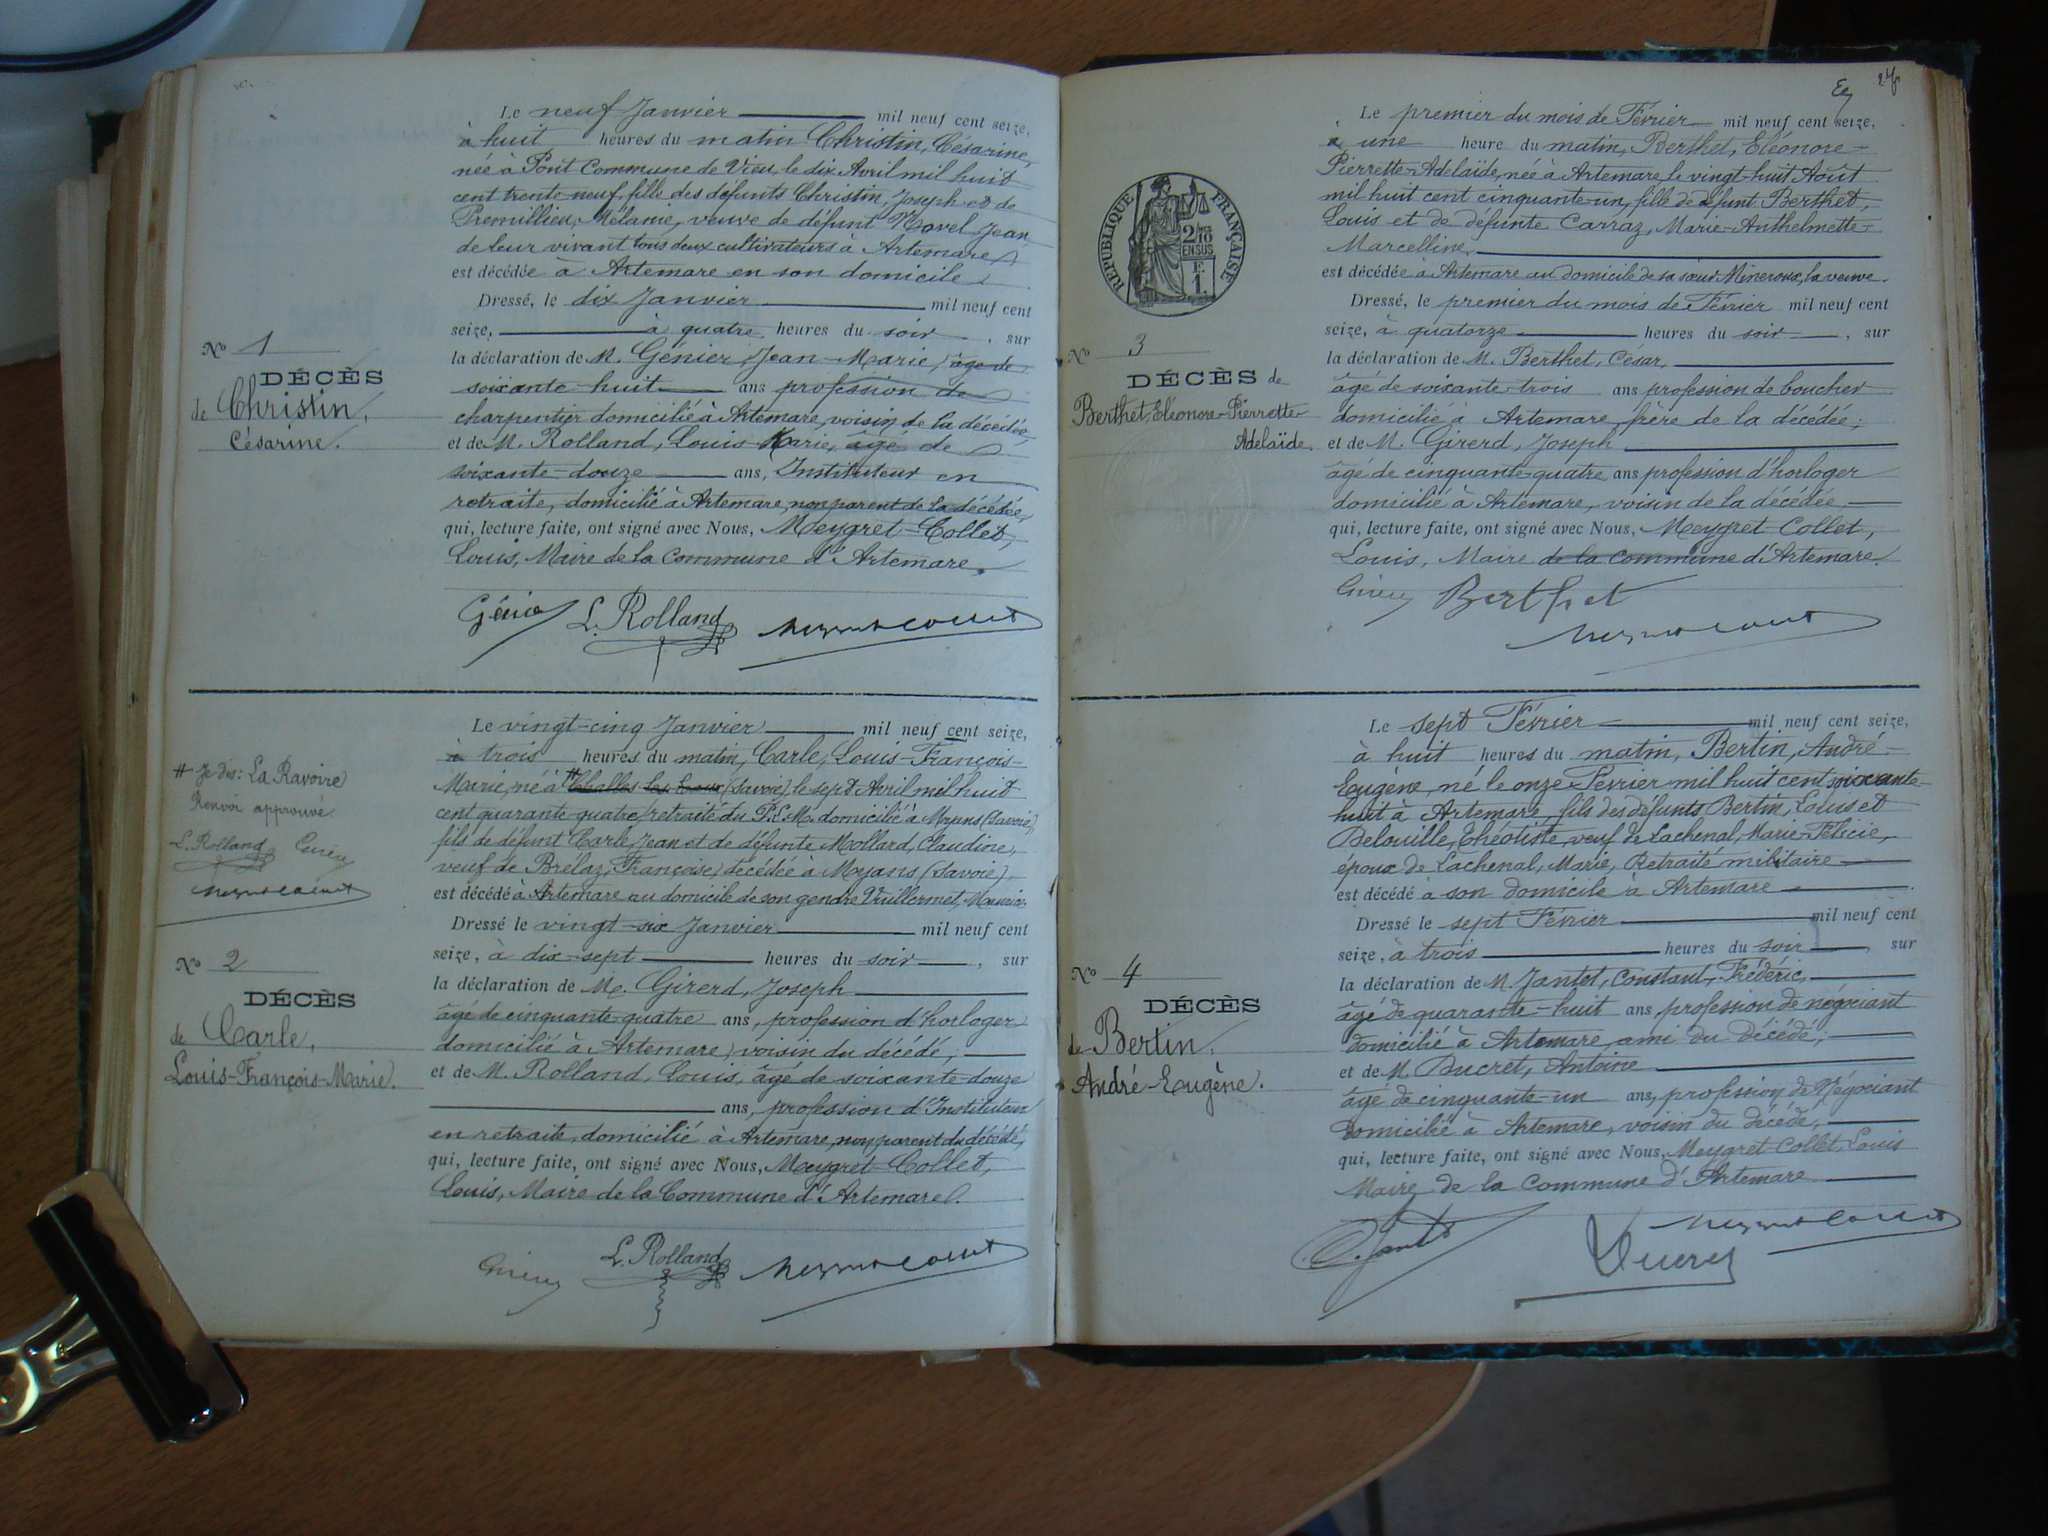 Le neuf Janvier mil neuf cent seize,
à huit heures du matin Christin, Césarine,
née à Pont Commune de Vieu, le dix Avril mil huit
cent trente-neuf, fille des défunts Christin, Joseph et de
Premillieu, Mélanie, veuve de défunt Mavel Jean
de leur vivant tous deux cultivateurs à Artemare
est décédée à Artemare en son domicile
Dressé, le dix Janvier mil neuf cent
seize, à quatre heures du soir, sur
la déclaration de M. Génier, Jean-Marie, âgé de
soixante-huit ans profession de
charpentier domicilié à Artemare, voisin de la décédée
et de M. Rolland, Louis-Marie, âgé de
soixante-douze ans, Instituteur en
retraite, domicilié à Artemare, non parent de la décédée,
qui, lecture faite, ont signé avec Nous, Meygret-Collet,
Louis, Maire de la Commune d'Artemare.
L. Rolland
No 1
DÉCÈS
de Christin,
Césarine.
Le vingt-cinq Janvier mil neuf cent seize,
à trois heures du matin, Carle, Louis-François-
Marie, né à # Challes les Eaux (Savoie) le sept Avril mil huit
cent quarante-quatre, retraité du P.L.M. domicilié à Myans (Savoie),
fils de défunt Carle, Jean et de défunte Mollard, Claudine,
veuf de Brélaz, Françoise, décédée à Myans (Savoie).
est décédé à Artemare au domicile de son gendre Vuillermet, Maurice
Dressé le vingt-six Janvier mil neuf cent
seize, à dix-sept heures du soir, sur
la déclaration de M. Girerd, Joseph
âgé de cinquante-quatre ans, profession d'horloger
domicilié à Artemare, voisin du décédé;
et de M. Rolland, Louis, âgé de soixante-douze
ans, profession d'Instituteur
en retraite, domicilié à Artemare, non parent du décédé,
qui, lecture faite, ont signé avec Nous, Meygret-Collet,
Louis, Maire de la Commune d'Artemare.
L. Rolland
# Je dis: La Ravoire
Renvoi approuvé
L. Rolland
No 2
DÉCÈS
de Carle,
Louis-François-Marie.
Le premier du mois de Février mil neuf cent seize,
à une heure du matin, Berthet, Eléonore-
Pierrette-Adelaïde, née à Artemare, le vingt-huit Août
mil huit cent cinquante-un, fille de défunt Berthet,
Louis et de défunte Carraz, Marie-Anthelmette-
Marcelline,
est décédée à Artemare au domicile de sa sœur Mineroux, la veuve.
Dressé, le premier du mois de Février mil neuf cent
seize, à quatorze heures du soir, sur
la déclaration de M. Berthet, César,
âgé de soixante-trois ans, profession de boucher
domicilié à Artemare, frère de la décédée;
et de M. Girerd, Joseph
âgé de cinquante-quatre ans profession d'horloger
domicilié à Artemare, voisin de la décédée,
qui, lecture faite, ont signé avec Nous, Meygret-Collet,
Louis, Maire de la commune d'Artemare.
Berthet
RÉPUBLIQUE FRANÇAISE
2/10
EN SUS
F.
1.
No 3
DÉCÈS de
Berthet, Eléonore-Pierrette-
Adelaïde.
Le sept Février mil neuf cent seize,
à huit heures du matin, Bertin, André-
Eugène, né le onze Février mil huit cent soixante-
huit à Artemare, fils des défunts Bertin, Louis et
Delouille, Théotiste, veuf de Lachenal, Marie-Félicie,
époux de Lachenal, Marie, Retraité militaire
est décédé à son domicile à Artemare
Dressé le sept Février mil neuf cent
seize, à trois heures du soir, sur
la déclaration de M. Jantet, Constant, Frédéric,
âgé de quarante-huit ans profession de négociant
domicilié à Artemare, ami du décédé;
et de M. Ducret, Antoine
âgé de cinquante-un ans, profession de Négociant
domicilié à Artemare, voisin du décédé,
qui, lecture faite, ont signé avec Nous, Meygret-Collet, Louis
Maire de la Commune d'Artemare
Ducret
No 4
DÉCÈS
de Bertin,
André-Eugène.